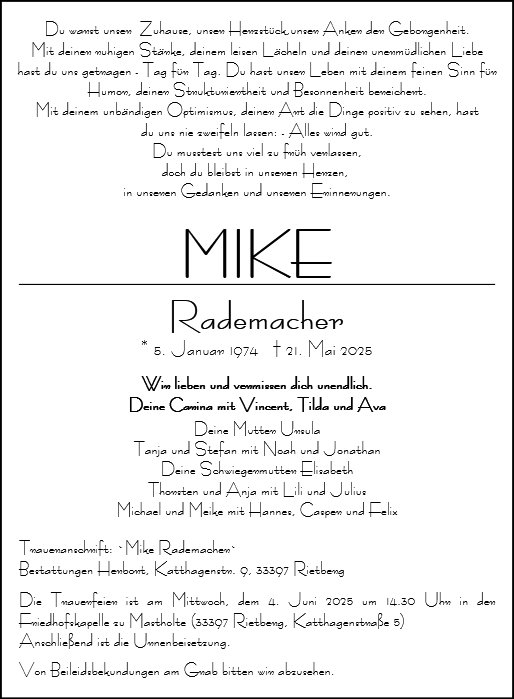 Du warst unser Zuhause, unser Herzstück, unser Anker der Geborgenheit.
Mit deiner ruhigen Stärke, deinem leisen Lächeln und deiner unermüdlichen Liebe
hast du uns getragen - Tag für Tag. Du hast unser Leben mit deinem feinen Sinn für
Humor, deiner Strukturiertheit und Besonnenheit bereichert.
Mit deinem unbändigen Optimismus, deiner Art die Dinge positiv zu sehen, hast
du uns nie zweifeln lassen: - Alles wird gut.
Du musstest uns viel zu früh verlassen,
doch du bleibst in unseren Herzen,
in unseren Gedanken und unseren Erinnerungen.
MIKE
Rademacher
* 5. Januar 1974 † 21. Mai 2025
Wir lieben und vermissen dich unendlich.
Deine Carina mit Vincent, Tilda und Ava
Deine Mutter Ursula
Tanja und Stefan mit Noah und Jonathan
Deine Schwiegermutter Elisabeth
Thorsten und Anja mit Lili und Julius
Michael und Meike mit Hannes, Casper und Felix
Traueranschrift: `Mike Rademacher`
Bestattungen Herbort, Katthagenstr. 9, 33397 Rietberg
Die Trauerfeier ist am Mittwoch, dem 4. Juni 2025 um 14.30 Uhr in der
Friedhofskapelle zu Mastholte (33397 Rietberg, Katthagenstraße 5)
Anschließend ist die Urnenbeisetzung.
Von Beileidsbekundungen am Grab bitten wir abzusehen.